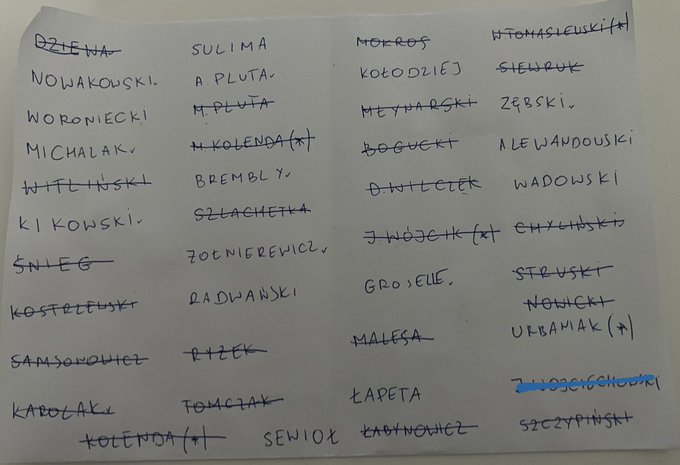 DZIEWA.
NOWAKOWSKI.
WORONIECKI
MICHALAK.
WITLIŃSKI
KIKOWSKI.
ŚNIEG
KOSTRZEWSKI
SAMSONOWICZ
KAROLAK.
KOLENDA (*)
SULIMA
A. PLUTA.
M. PLUTA
M. KOLENDA (*)
BREMBLY.
SZLACHETKA
ŻOŁNIEREWICZ.
RADWAŃSKI
RYŻEK
TOMCZAK
SEWIOŁ
MOKROS
KOŁODZIEJ
MŁYNARSKI
BOGUCKI
D. WILCZEK
J. WÓJCIK (*)
GROSELLE.
MALESA
ŁAPETA
ŁABYNOWICZ
W TOMASZEWSKI (*)
SIEWRUK
ZĘBSKI.
ALEWANDOWSKI
WADOWSKI
CHYLIŃSKI.
STRUSKI
NOWICKI
URBANIAK (*)
WOJCIECHOWSKI
SZCZYPIŃSKI